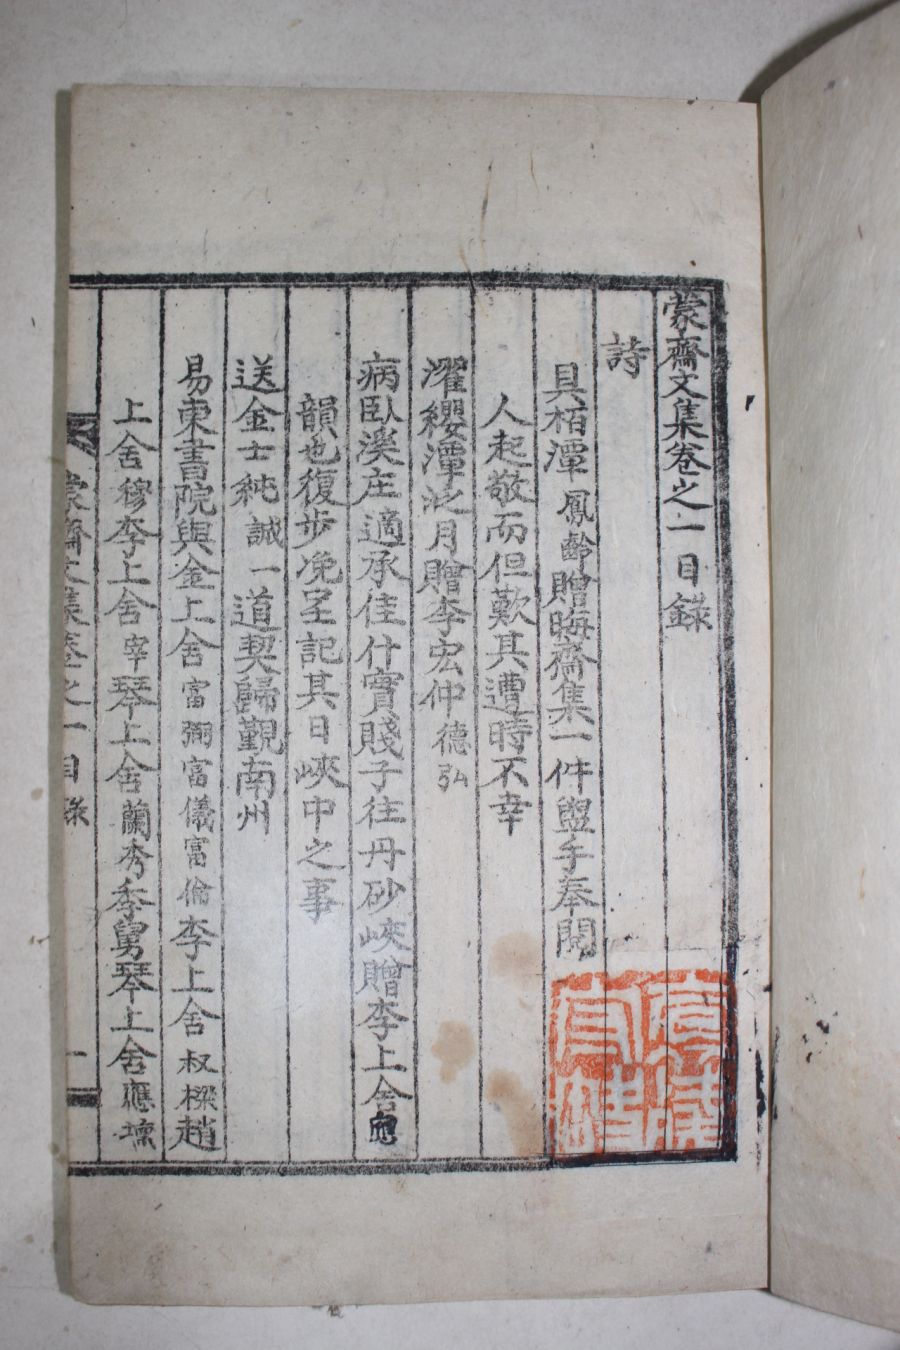 蒙齋文集卷之一目錄
詩
具栢潭鳳齡贈晦齋集一件盥手奉閱
人起敬而但歎其遭時不幸
濯纓潭泛月贈李宏仲德弘
病臥溪庄適承佳什實賤子往丹砂峽贈李上舍
韻也復步俛呈記其日峽中之事
送金士純誠一道契歸覲南州
易東書院與金上舍富弼富儀富倫李上舍叔樑趙
上舍穆李上舍宰琴上舍蘭秀季舅琴上舍應壎
蒙齋文集卷之一目錄
一